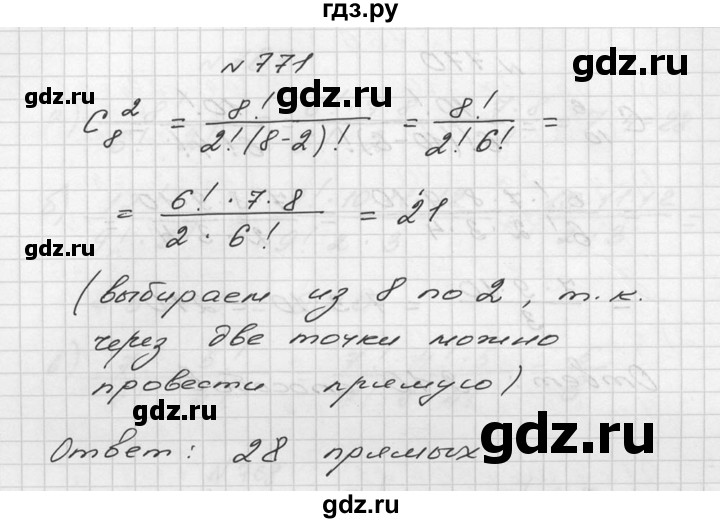 гдз.ру
№771
gdz.ru gdz.ru gdz.ru
C₈² = 8! / 2!(8-2)! = 8! / 2! 6! =
= 6! · 7 · 8 / 2 · 6! = 21
gdz.ru gdz.ru
(выбираем из 8 по 2, т.к.
через две точки можно
провести прямую)
Ответ: 28 прямых
gdz.ru
gdz.ru